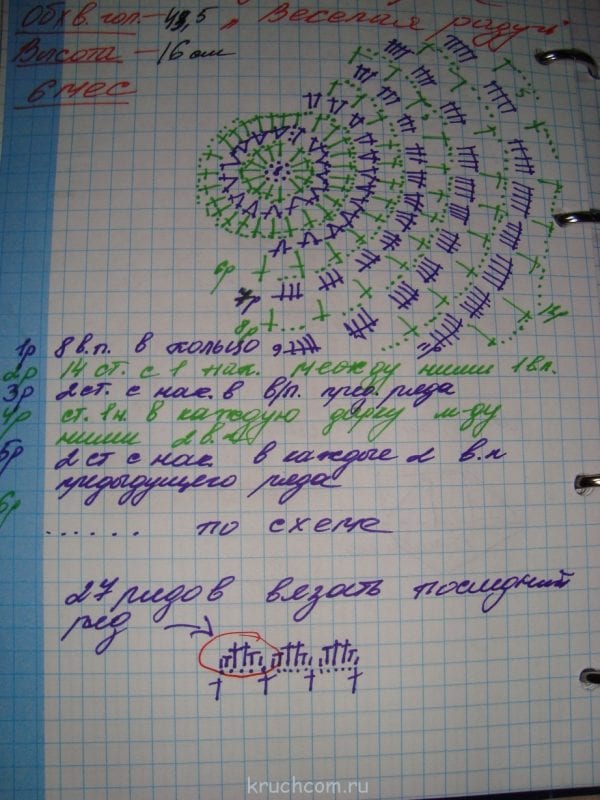 Обхв. гол. - 43,5 „Веселая радуга"
Высота - 16 см
6 мес
5
6р
7р
8р
9
11р
14р
1р 8 в.п. в кольцо
2р 14 ст. с 1 нак. между ними 1 вп.
3р 2 ст. с нак. в в/п. пред. ряда
4р ст. 1н. в каждую дырку м-ду
ними 2 в.п.
5р 2 ст с нак. в каждые 2 в.п
предыдущего ряда
6р
...... по схеме
27 рядов вязать последний
ряд
kruchcom.ru